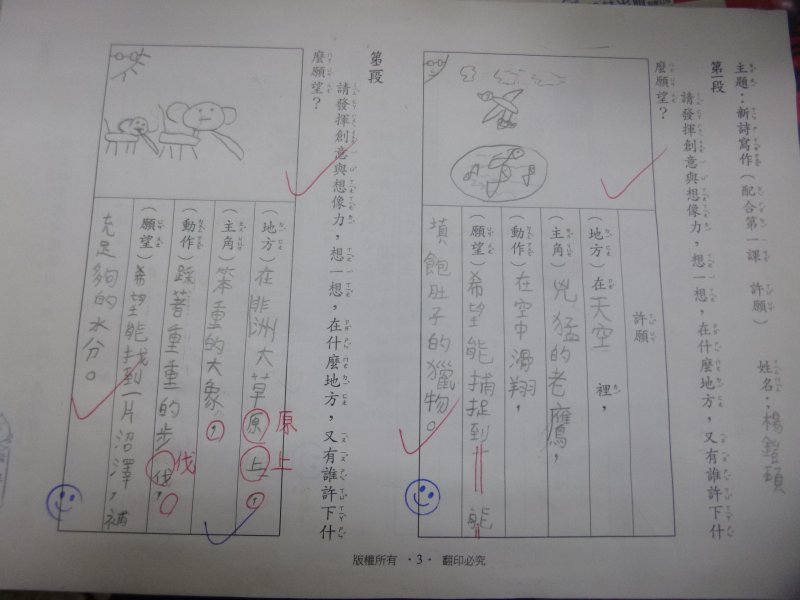 主題：新詩寫作（配合第一課　許願）　姓名：楊鎧頊
第一段
請發揮創意與想像力，想一想，在什麼地方，又有誰許下什
麼願望？
許願
（地方）在天空裡，
（主角）兇猛的老鷹，
（動作）在空中滑翔，
（願望）希望能捕捉到能
填飽肚子的獵物。
第二段
請發揮創意與想像力，想一想，在什麼地方，又有誰許下什
麼願望？
（地方）在非洲大草原上，
原上
（主角）笨重的大象，
（動作）踩著重重的步伐，
伐
（願望）希望能找到一片沼澤，補
充足夠的水分。
版權所有 ·3· 翻印必究